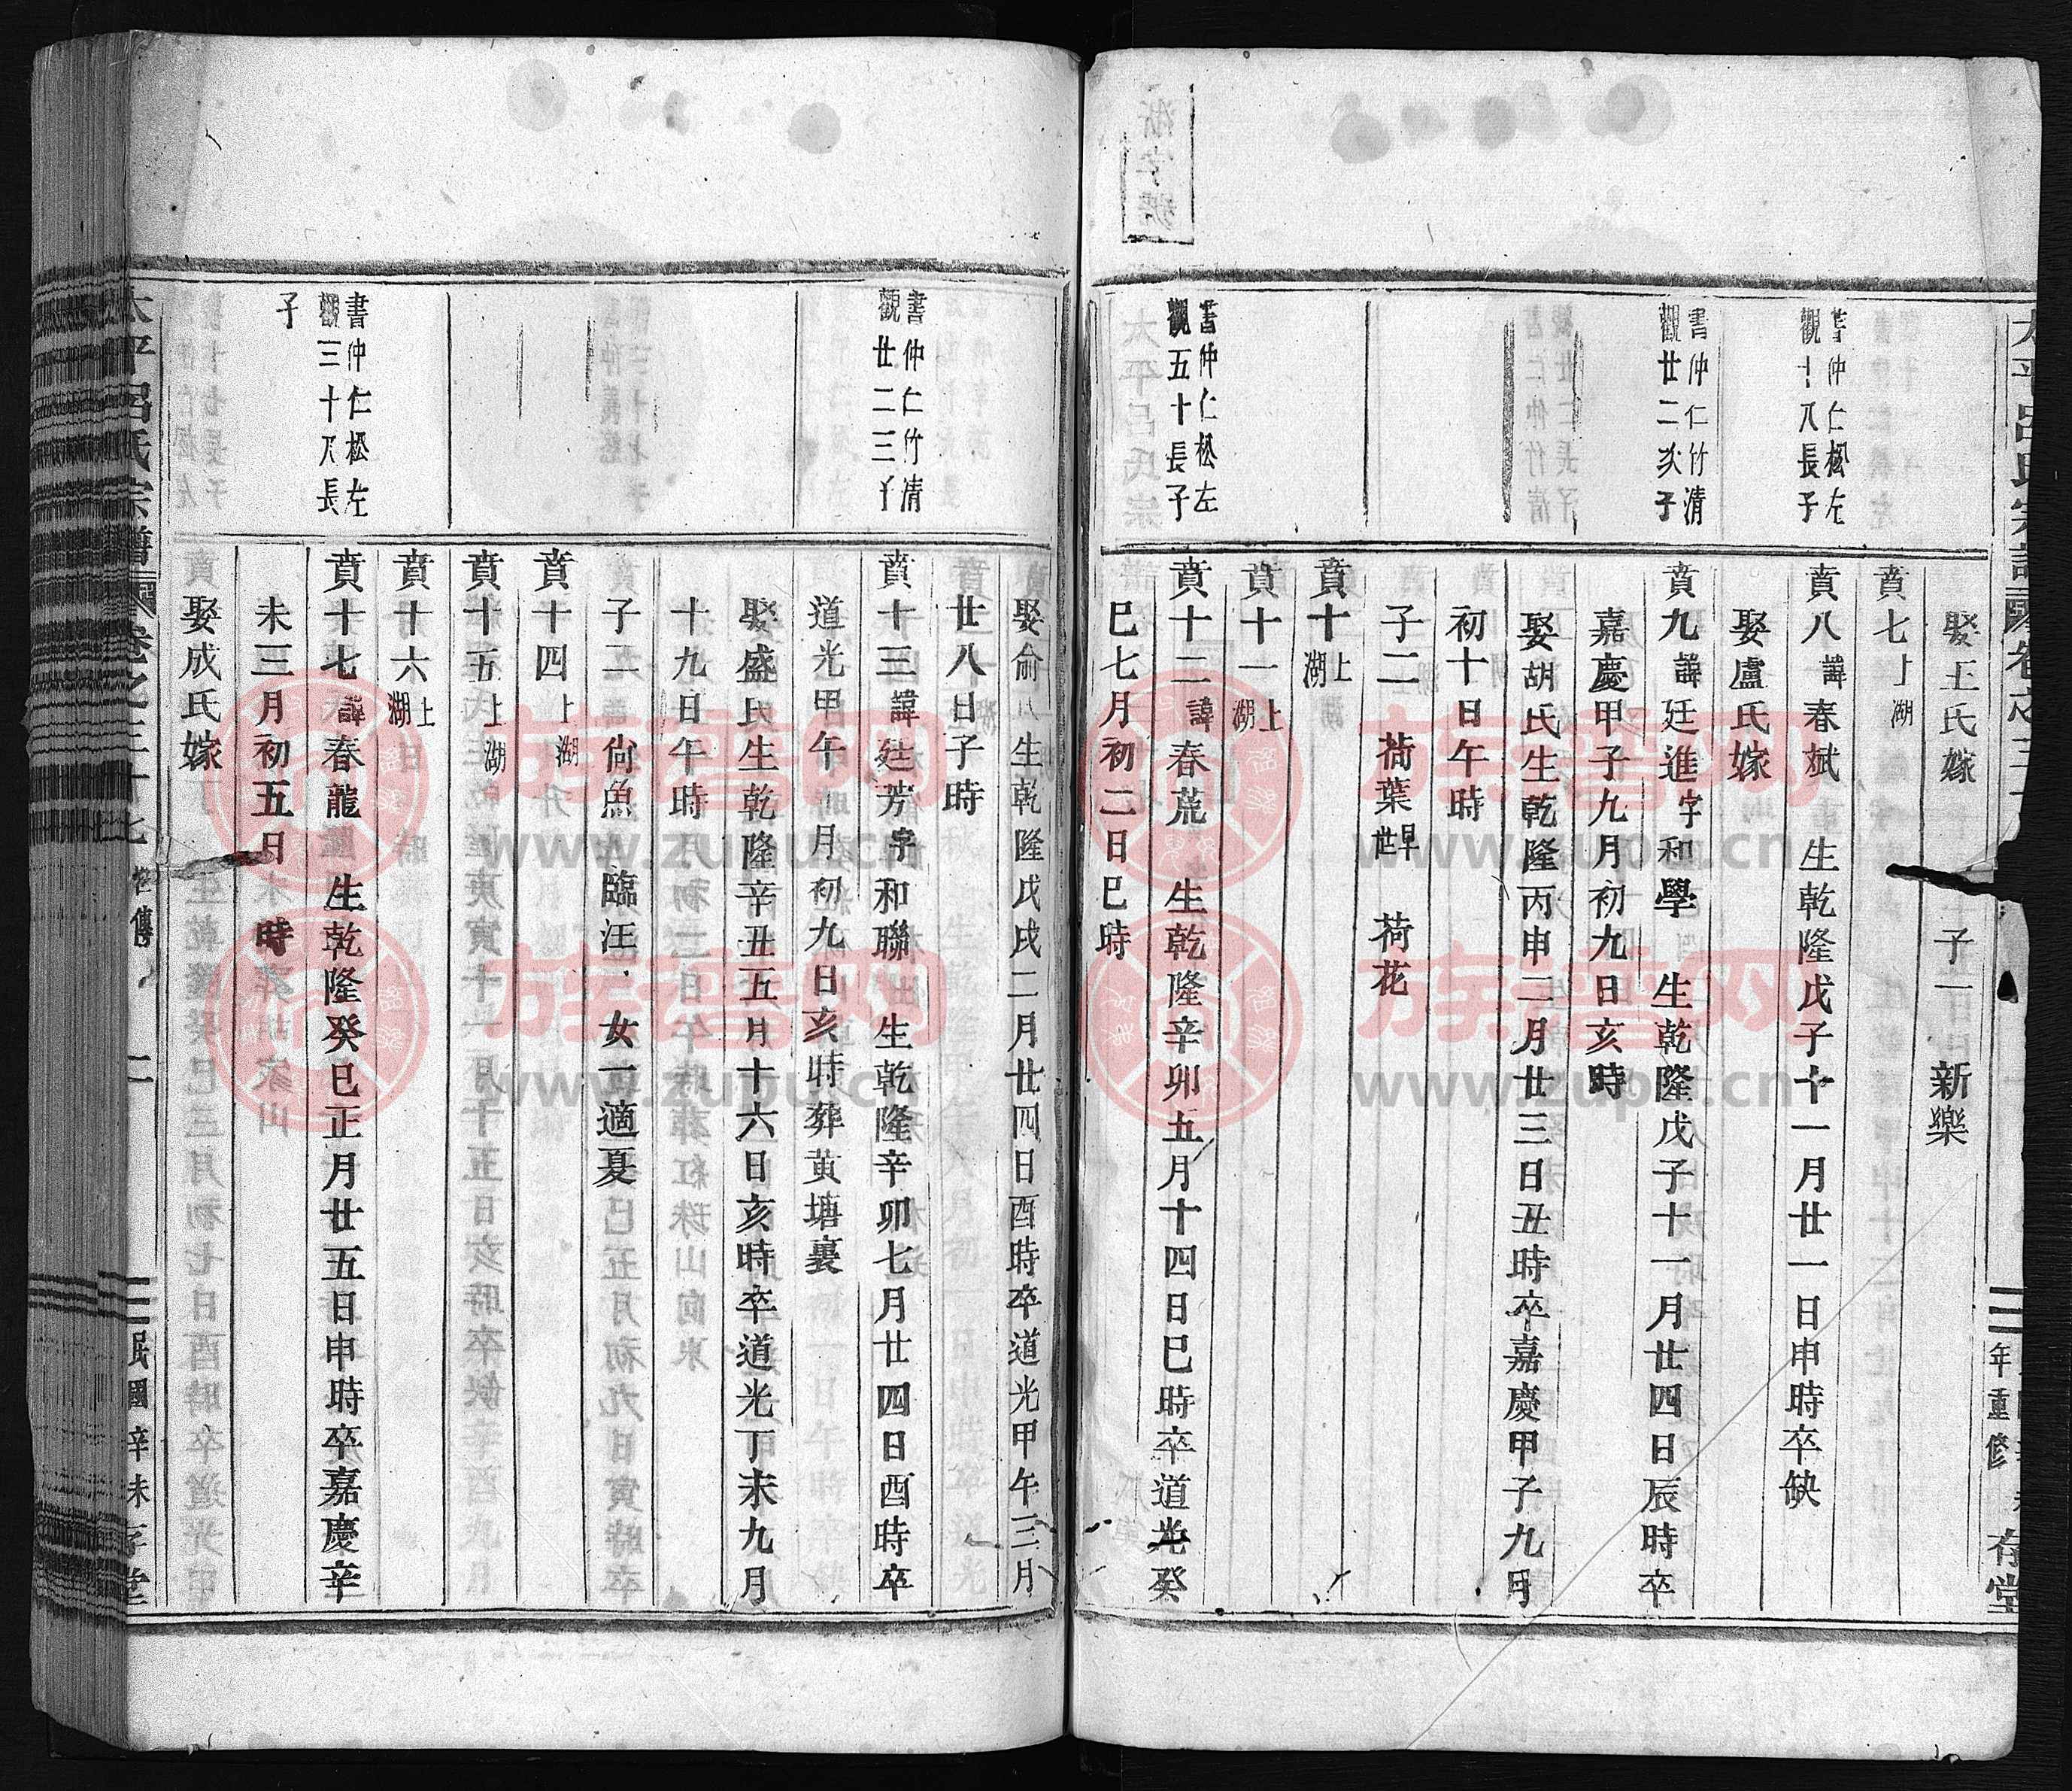 娶王氏嫁 子一 新樂
賁七上湖
書仲仁松左
觀十八長子
賁八諱春斌 生乾隆戊子十一月廿一日申時卒缺
娶盧氏嫁
書仲仁竹清
觀廿二次子
賁九諱廷進字和學 生乾隆戊子十一月廿四日辰時卒
嘉慶甲子九月初九日亥時
娶胡氏生乾隆丙申二月廿三日丑時卒嘉慶甲子九月
初十日午時
子二 荷葉早世 荷花
賁十上湖
賁十一上湖
書仲仁松左
觀五十長子
賁十二諱春荒 生乾隆辛卯五月十四日巳時卒道光癸
巳七月初二日巳時
年重修 存堂
娶俞氏生乾隆戊戌二月廿四日酉時卒道光甲午三月
廿八日子時
書仲仁竹清
觀廿二三子
賁十三諱廷芳字和聯 生乾隆辛卯七月廿四日酉時卒
道光甲午 月初九日亥時葬黃塘裏
娶盛氏生乾隆辛丑五月十六日亥時卒道光丁未九月
十九日午時
子二 尙魚 臨汪 女一適夏
賁十四上湖
賁十五上湖
賁十六上湖
書仲仁松左
觀三十八長
子
賁十七諱春龍 生乾隆癸巳正月廿五日申時卒嘉慶辛
未三月初五日 時
娶成氏嫁
太平呂氏宗譜 卷之三十七 傳 二 民國辛未 存堂
族譜网
www.zupu.cn
族譜网
www.zupu.cn
族譜网
www.zupu.cn
族譜网
www.zupu.cn